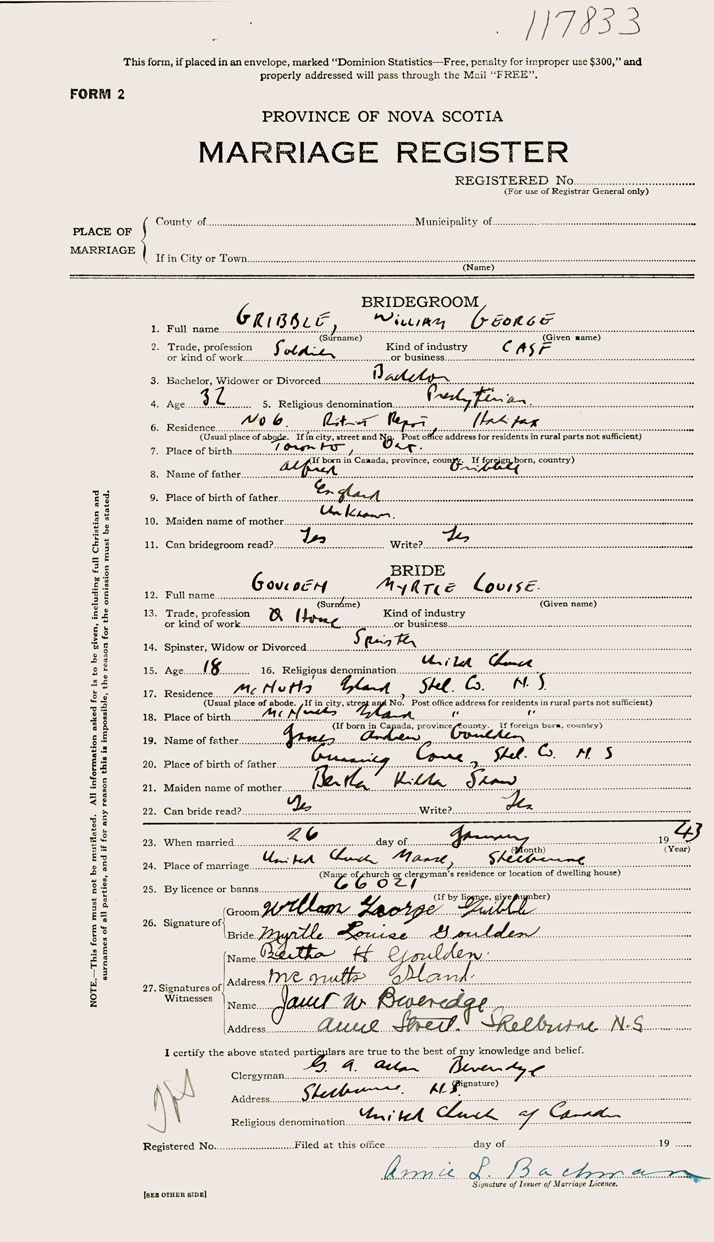 117833
This form, if placed in an envelope, marked "Dominion Statistics—Free, penalty for improper use $300," and
properly addressed will pass through the Mail "FREE".
FORM 2
PROVINCE OF NOVA SCOTIA
MARRIAGE REGISTER
REGISTERED No.
(For use of Registrar General only)
PLACE OF MARRIAGE
County of Municipality of
If in City or Town
(Name)
BRIDEGROOM
1. Full name GRIBBLE, WILLIAM GEORGE
(Surname) (Given name)
2. Trade, profession or kind of work Soldier Kind of industry or business CASF
3. Bachelor, Widower or Divorced Bachelor
4. Age 32 5. Religious denomination Presbyterian
6. Residence No 6. District Depot, Halifax
(Usual place of abode. If in city, street and No. Post office address for residents in rural parts not sufficient)
7. Place of birth Toronto, Ont.
(If born in Canada, province, county. If foreign born, country)
8. Name of father Alfred Gribble
9. Place of birth of father England
10. Maiden name of mother Unknown.
11. Can bridegroom read? Yes Write? Yes
BRIDE
12. Full name GOULDEN MYRTLE LOUISE.
(Surname) (Given name)
13. Trade, profession or kind of work @ Home Kind of industry or business
14. Spinster, Widow or Divorced Spinster
15. Age 18 16. Religious denomination United Church
17. Residence McNutts Island, Shel. Co. N.S.
(Usual place of abode. If in city, street and No. Post office address for residents in rural parts not sufficient)
18. Place of birth McNutts Island " "
(If born in Canada, province, county. If foreign born, country)
19. Name of father James Andrew Goulden
20. Place of birth of father Gunning Cove, Shel. Co. N.S
21. Maiden name of mother Bertha Hilda Snow
22. Can bride read? Yes Write? Yes
23. When married 26 day of January 1943
(Month) (Year)
24. Place of marriage United Church Manse, Shelburne
(Name of church or clergyman's residence or location of dwelling house)
25. By licence or banns 66021
(If by licence, give number)
26. Signature of
Groom William George Gribble
Bride Myrtle Louise Goulden
27. Signatures of Witnesses
Name Bertha H Goulden.
Address McNutts Island.
Name Janet W Beveridge
Address Anne Street. Shelburne N.S
I certify the above stated particulars are true to the best of my knowledge and belief.
Clergyman G. A. Allan Beveridge
(Signature)
Address Shelburne. N.S.
Religious denomination United Church of Canada
Registered No. Filed at this office day of 19
Annie L. Bachman
Signature of Issuer of Marriage Licence.
[SEE OTHER SIDE]
NOTE.—This form must not be mutilated. All information asked for is to be given, including full Christian and
surnames of all parties, and if for any reason this is impossible, the reason for the omission must be stated.